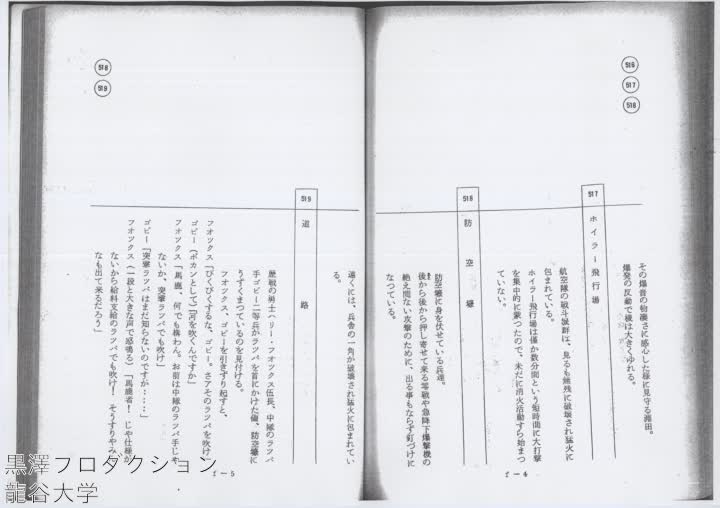 516
517
518
その爆音の物凄さに感心した様に見守る淵田。
爆発の反動で機は大きくゆれる。
517 ホイラー飛行場
航空隊の戦斗機群は、見るも無残に破壊され猛火に
包まれている。
ホイラー飛行場は僅か数分間という短時間に大打撃
を集中的に蒙つたので、未だに消火活動すら始まつ
ていない。
518 防空壕
防空壕に身を伏せている兵達。
後から後から押し寄せて来る零戦や急降下爆撃機の
絶え間ない攻撃のために、出る事もならず釘づけに
なつている。
f-4
518
519
遠くには、兵舎の一角が破壊され猛火に包まれてい
る。
519 道路
歴戦の勇士ハリー・フオツクス伍長、中隊のラツパ
手ゴビー二等兵がラツパを首にかけた儘、防空壕に
うずくまつているのを見付ける。
フオツクス、ゴビーを引きずり起すと、
フオツクス「びくびくするな、ゴビー。さアそのラツパを吹け」
ゴビー（ポカンとして）「何を吹くんですか」
フオツクス「馬鹿、何でも構わん。お前は中隊のラツパ手じや
ないか、突撃ラツパでも吹け」
ゴビー「突撃ラツパはまだ知らないのですが……」
フオツクス（一段と大きな声で怒鳴る）「馬鹿者！じや仕様が
ないから給料支給のラツパでも吹け！そうすりやみん
なも出て来るだろう」
f-5
黒澤プロダクション
龍谷大学